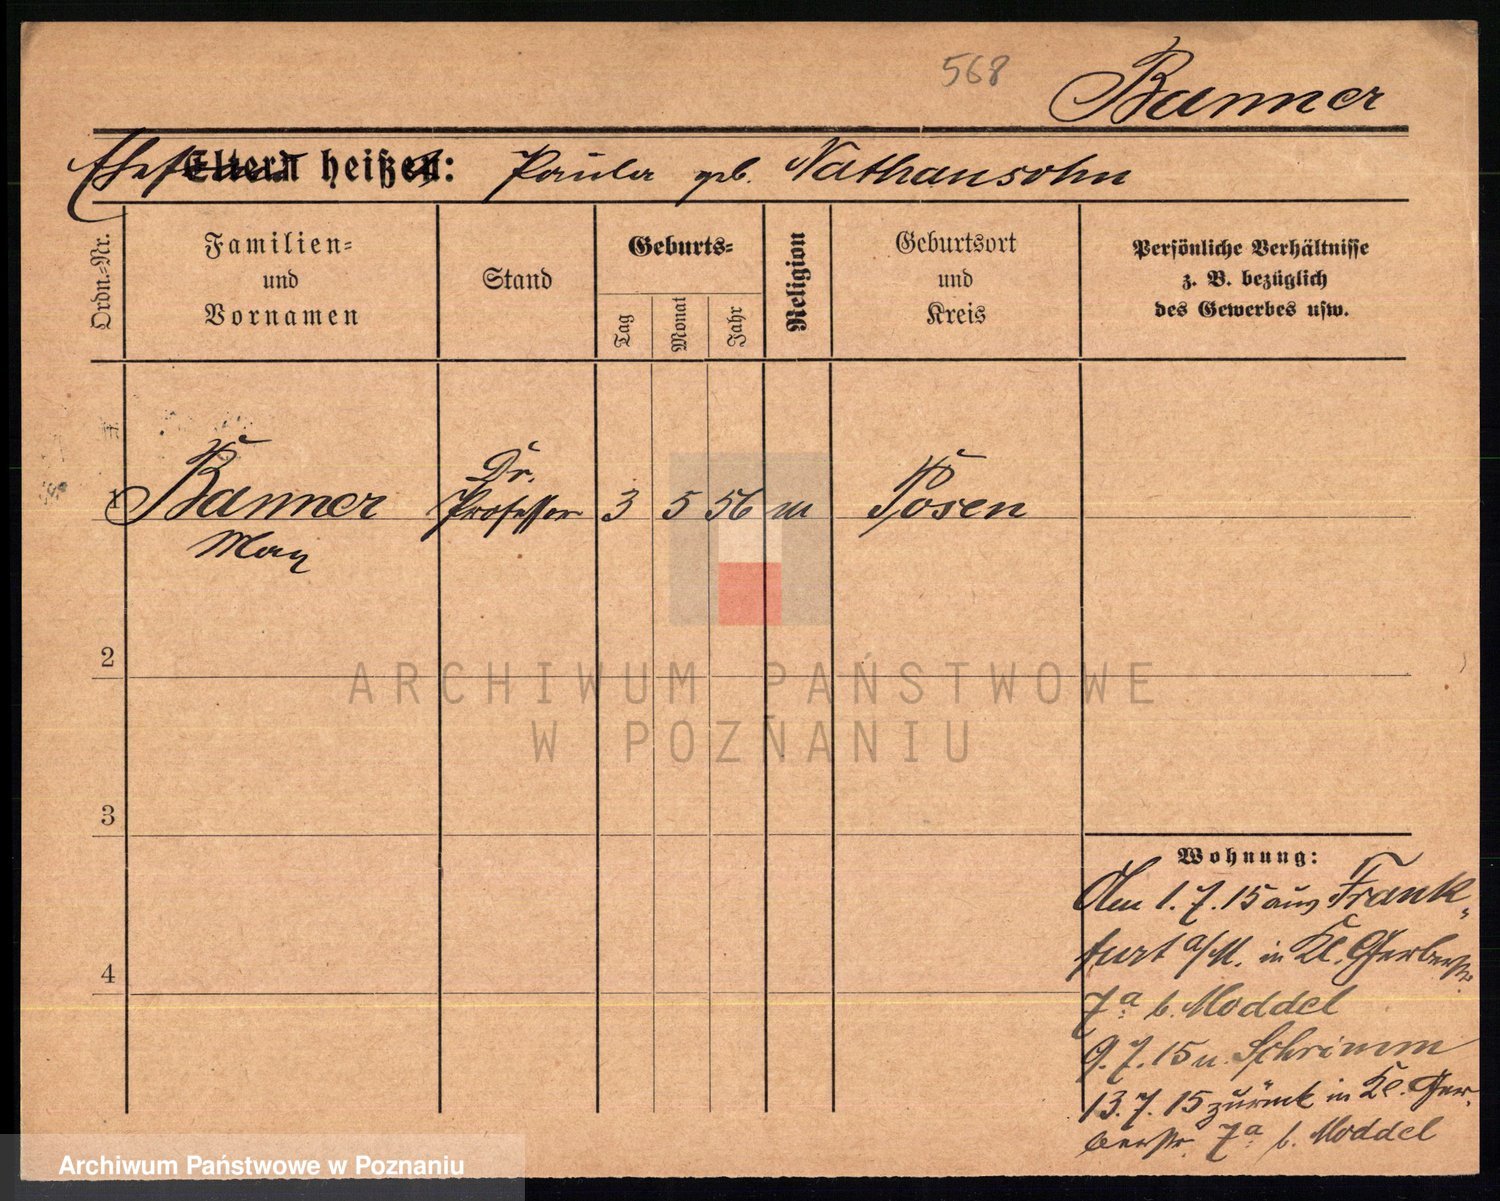 568
Banner
Ehefrau
Eltern heißen: Paula geb. Nathansohn
Ordn.-Nr.
Familien-
und
Vornamen
Stand
Geburts-
Tag
Monat
Jahr
Religion
Geburtsort
und
Kreis
Persönliche Verhältnisse
z. B. bezüglich
des Gewerbes usw.
1 Banner
Max
Dr.
Professor
3 5 56 m
Posen
2
3
4
ARCHIWUM PAŃSTWOWE
W POZNANIU
Wohnung:
Am 1.7.15 aus Frank-
furt a/M. in Kl. Gerberstr.
7a b. Moddel
9.7.15 n. Schrimm
13.7.15 zurück in Kl. Ger-
berstr. 7a b. Moddel
Archiwum Państwowe w Poznaniu